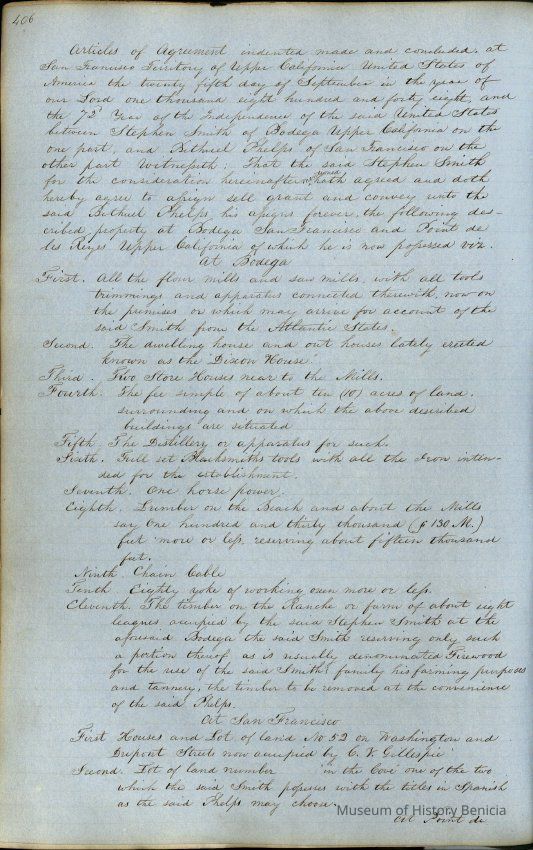 406
Articles of Agreement indented made and concluded, at
San Francisco Territory of Upper California United States of
America the twenty fifth day of September in the year of
our Lord one thousand eight hundred and forty eight, and
the 72d Year of the Independence of the said United States
between Stephen Smith of Bodega Upper California on the
one part, and Bethuel Phelps of San Francisco on the
other part Witnesseth: That the said Stephen Smith
for the consideration hereinafter named hath agreed and doth
hereby agree to assign sell grant and convey unto the
said Bethuel Phelps, his assigns forever, the following des-
cribed property at Bodega San Francisco and Point de
los Reyes Upper California of which he is now possessed viz.
At Bodega
First. All the flour mills and saw mills, with all tools
trimmings and apparatus connected therewith, now on
the premises or which may arrive for account of the
said Smith from the Atlantic States.
Second. The dwelling house and out houses lately erected
known as the Dixon House.
Third. Two Store Houses near to the Mills.
Fourth. The fee simple of about ten (10) acres of land.
surrounding and on which the above described
buildings are situated
Fifth. The Distillery or apparatus for such.
Sixth. Full set Blacksmiths tools with all the Iron inten-
ded for the establishment.
Seventh. One horse power.
Eighth. Lumber on the Beach and about the Mills
say One hundred and thirty thousand ( 130 M.)
feet more or less, reserving about fifteen thousand
feet.
Ninth. Chain Cable
Tenth. Eighty yoke of working oxen more or less.
Eleventh. The timber on the Ranche or farm of about eight
leagues, occupied by the said Stephen Smith at the
aforesaid Bodega the said Smith reserving only such
a portion thereof as is usually denominated Firewood
for the use of the said Smiths family his farming purposes
and tannery, the timber to be removed at the convenience
of the said Phelps.
At San Francisco
First Houses and Lot of land No 52 on Washington and
Dupont Streets now occupied by C. V. Gillespie
Second. Lot of land number in the Cove one of the two
which the said Smith possesses with the titles in Spanish
as the said Phelps may choose.
At Point de
Museum of History Benicia